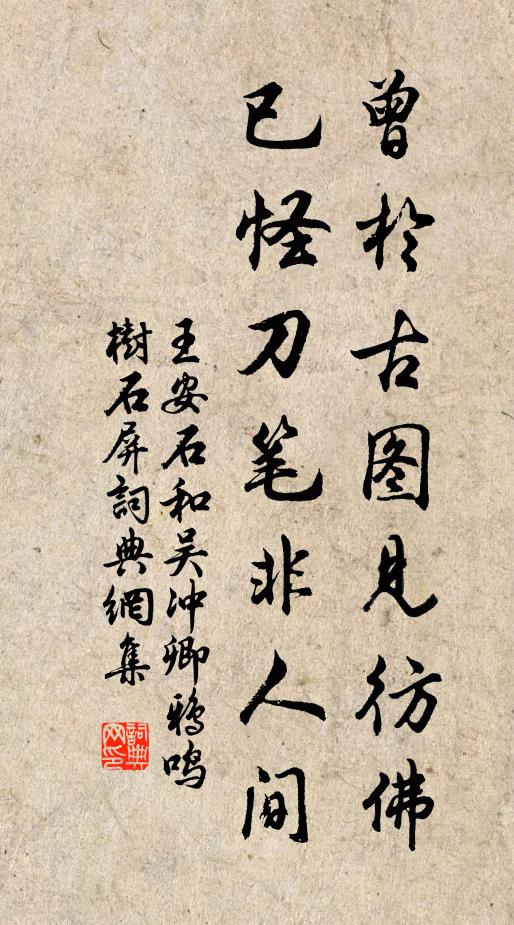 曾於古图見彷佛
已怪刀笔非人间
王安石和吴冲卿鸦鸣
樹石屏詞典網集
詞典
网印